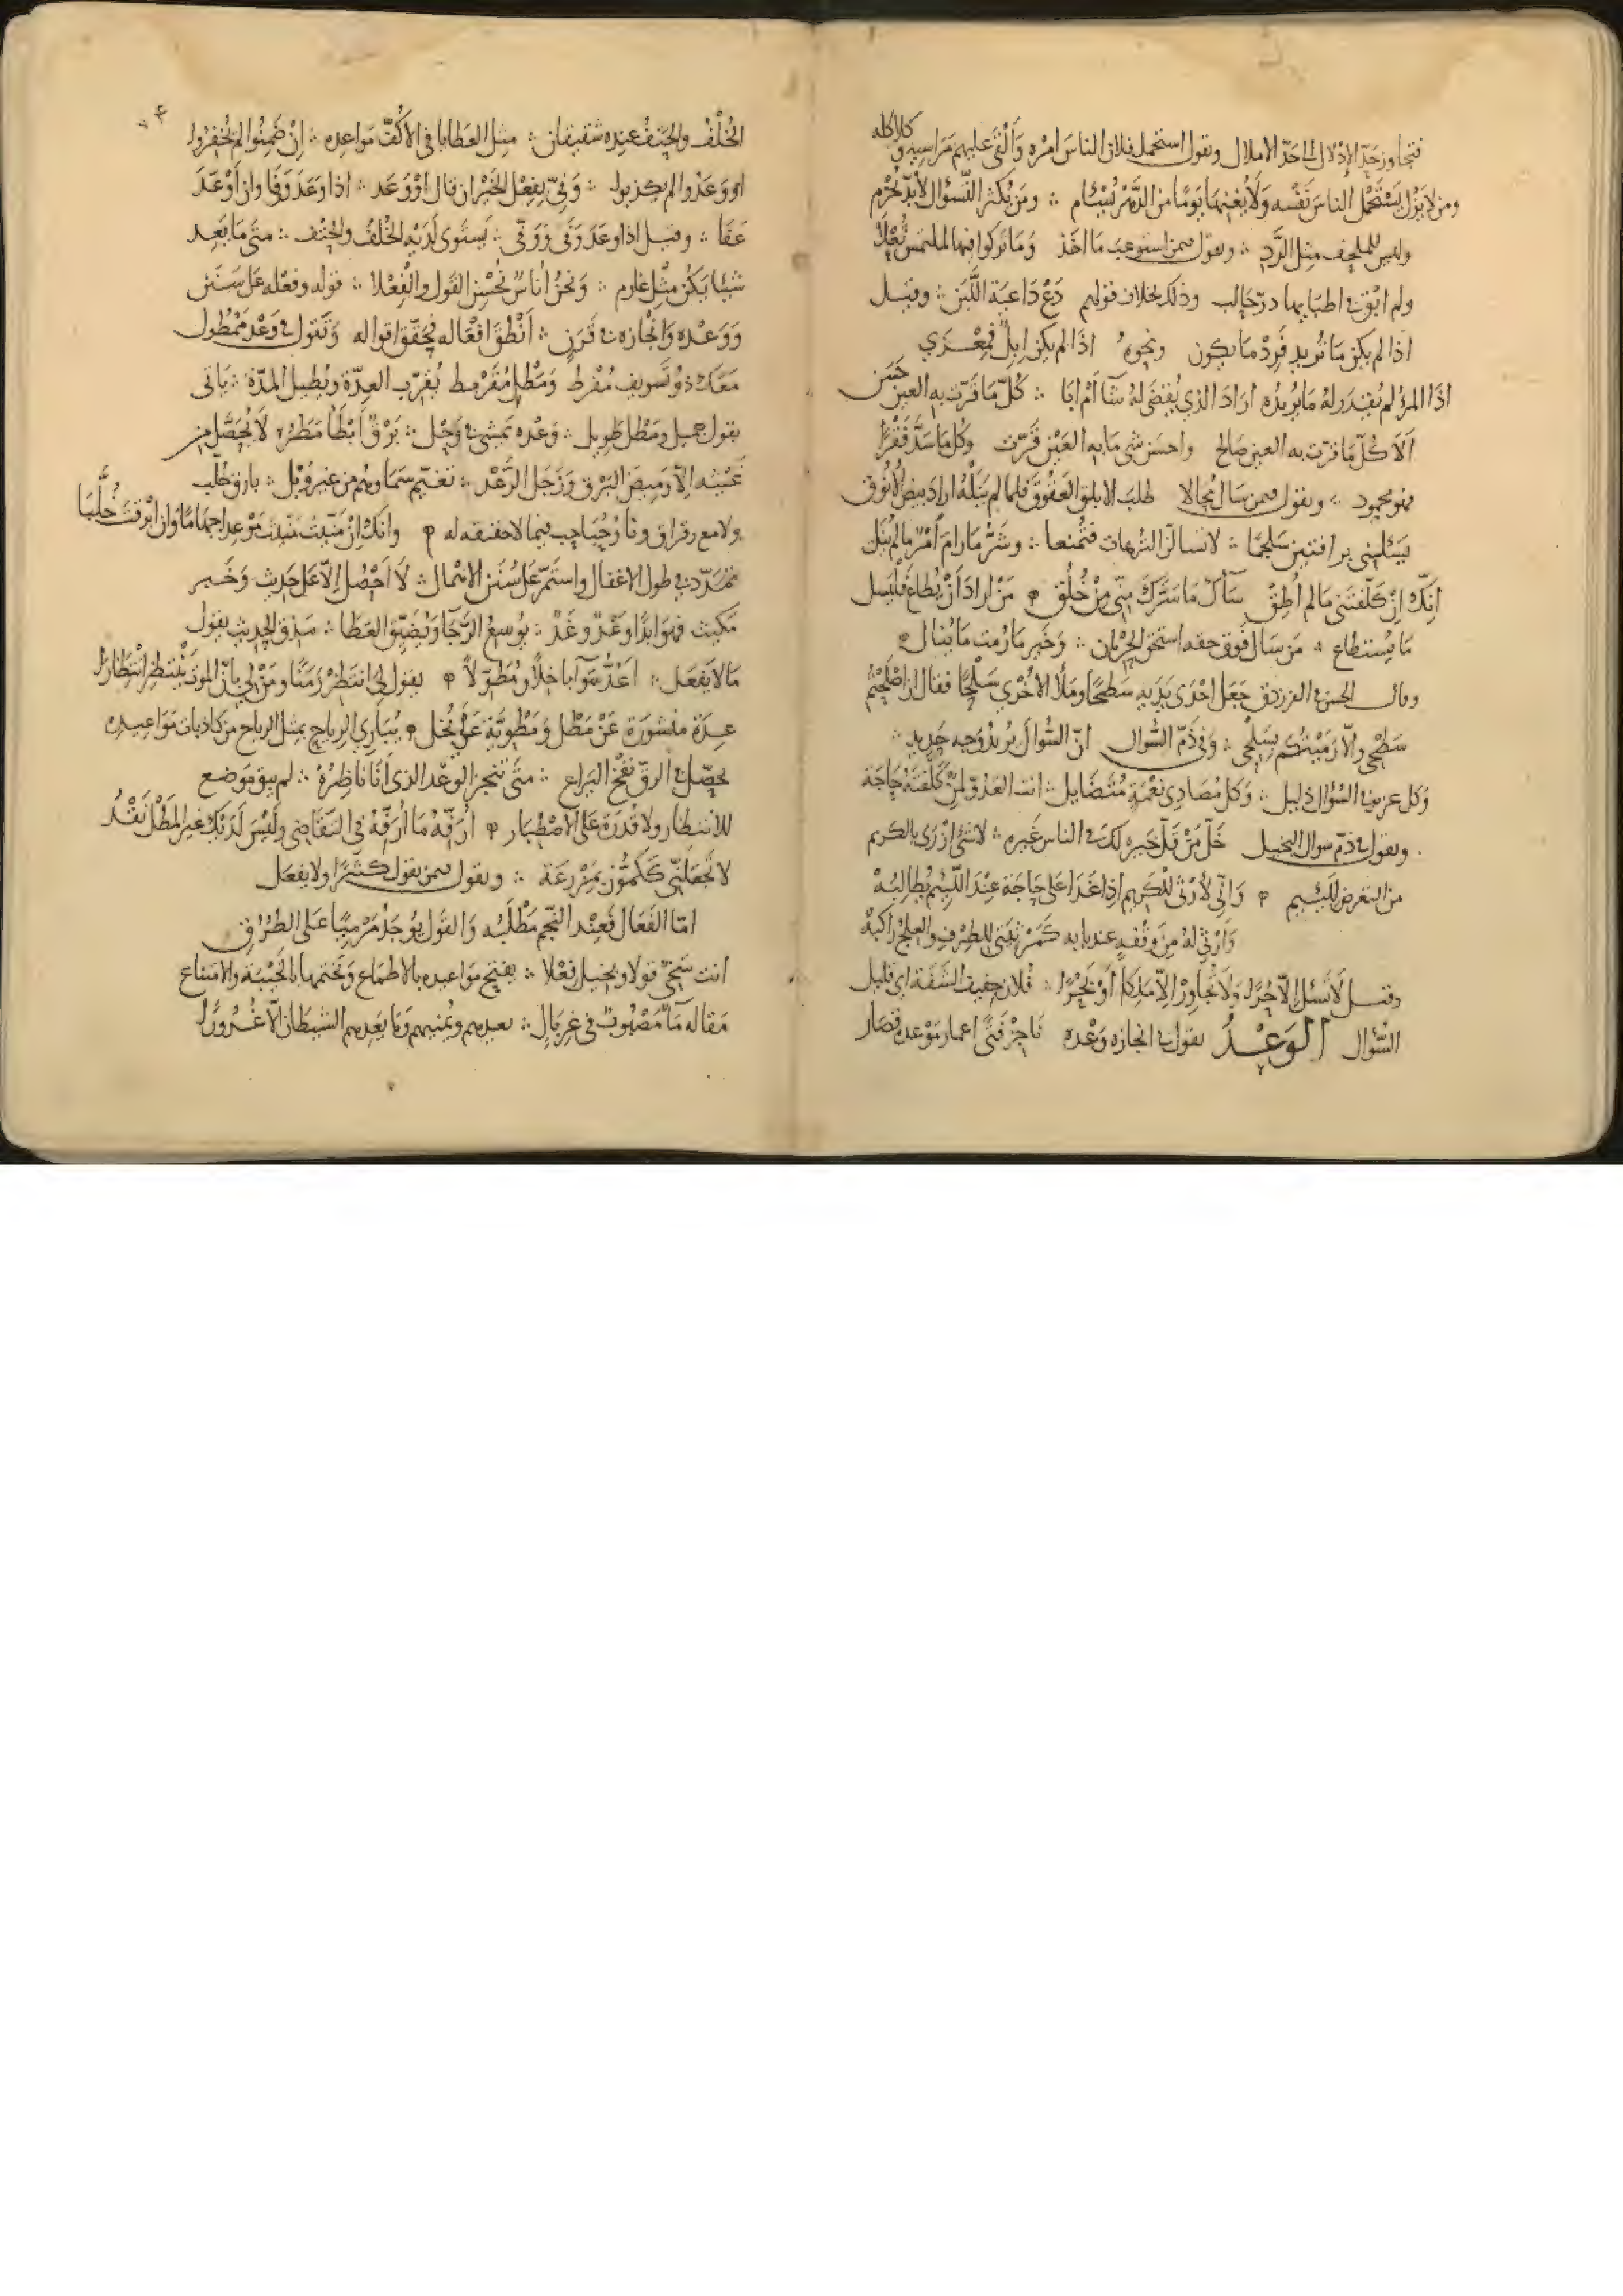 فتجاوز حدّ الإدلال الى حدّ الاملال وتقول استحمل فلان الناس امره وَأَلْقى عليهم مراسيه وكلاكله
ومن لا يزل يَسْتَحْمل الناس نفسه وَلا يُغنها يَوْمًا من الدَّهْرِ يُسْئَم ∴ ومَن يُكثر التَّسْؤال لا بدّ يُحْرَم
وليس للملحف مثل الرَّدِ ∴ وتقول فيمن استوعب مَا اخَذ وَمَا تركوا فيها لملتمس ثُعْلَا
ولم ابْق في اطبائها درّ حالب وذلك بخلاف قولهم دَعْ دَاعيَة اللَّبَن ∴ وقيل
اذا لم يكن مَا تُريد فَرِدْ مَا يكون ونحوه اذَا لم يكن ابِلٌ فمِعْزَى
اذَا المرؤ لم يُقدَر لهُ مَا يُريدُه ارَادَ الذي يُقْضَى لهُ شَآ أَمْ ابَا ∴ كُلّ مَا قرّت به العين حَسَن
اَلاَ كُلّ مَا قرّت به العين صَالح واحسَن شي مَا به العَيْن قَرّت وكل مَا سَدَّ فَقْرًا
فهو محمود ∴ وتقول فيمن سَال مُحَالا طلبَ الابلق العَقُوقَ فلما لم يَنَلْهُ ارادَ بيضَ الأنُوق
يَسْئلني برامتين سَلجمًا ∴ لا تسأل الترهات فتُمنعا ∴ وشَرُّ مَا رامَ امْرؤ مَا لم يَنَل
انّكَ اِنْ كلّفتَني مَا لم أُطِقْ سَآكَ مَا سَرَّك منّي مِنْ خُلُق ∴ مَنْ ارادَ أَنْ يُطاع فَلْيَسل
مَا يُستطاع ∴ مَن سَال فَوق حقه استحق الحِرْمان ∴ وَخَير مَا رُمت مَا يُنال
وقال الحسن الفرزدق جَعَل احْدَى يَدَيه سَطحًا وملأ الاخْرى سَلْحًا فقال ان اصْلَحْتُم
سَطْحي والاّ رَمَيْتُكم بِسَلْحي ∴ وَفي ذَمّ السُّوال انّ السُّوالَ يُريدُ وَجه حَديد ∴
وَكل عزيز في السُّؤال ذليل ∴ وَكل مُصَادي نعْمَةٍ مُتَضَايل ∴ انت العَدُوّ لِمَنْ كلّفتَهُ حَاجَة
وتقول في ذَمّ سوال البخيل خَلّ مَنْ قَلّ خَيره لكَ في الناس غَيره ∴ لا شَئ ازْرَى بالكريم
من التعرض للئيم ∴ وَانّي لأرْثي للكريم اذا غَدَا عَلى حَاجَة عنْدَ اللَّئيم يُطالبُهْ
وَارْثي لهُ مِن وَقْفَةٍ عند بابه كَمَرْثيتي للطِّرْف والعلجُ رَاكبُهْ
وقيل لا تَسئل الاّ حُرًّا وَلا تُجاوِر الاّ مَلِكا أَوْ بَحْرًا ∴ فُلان خفيف الشَّفَة اي قليل
السُّوال الوَعْد تقول في انجازه وَعْده نَاجِز فتًى اعمار مَوْعده قصَار
الخُلْفُ والحَتْفُ عنده شقيقان ∴ مثل العَطايا في الاكُفّ مَواعده ∴ اِنْ ضَمِنُوا لم يُخْفِرُوا
او وَعَدُوا لم يكذبوا ∴ وَفيّ بِفِعْل الخَيْر ان قال اوْ وَعَد ∴ اذا وَعَدَ وَفَا وان اَوْعَدَ
عَفَا ∴ وقيل اذا وعَدَ وَفَى وَوَقَى ∴ يَستَوى لَدَيْه الخُلْفُ والحَتْف ∴ متى مَا يَعِد
شيئا يَكُنْ مثْل غارِم ∴ وَنحنُ أُناسٌ نُحْسِن القَولَ والفِعْلا ∴ قوله وفعله عَلى سَنَن
وَوَعْده وَانْجَازه في قَرَن ∴ اَنْطَقَ افْعَاله فحقّق اقواله وَتَقول في وَعْد مَمْطُول
مَعَكَ ذُو تَسويف مُفْرط وَمَطْل مُقَرْمط يُقرّب العِدّة ويُطيل المدّة ∴ يَاتى
بقول جميل ومَطْل طَويل ∴ وَعْده يَمْشى في وَحْل ∴ بَرْقٌ أَبطَأَ مَطَرُه لا نُحصّل من
غَيْثه الاّ وَميضَ البَرْق وَزَجَل الرَّعْد ∴ تَغيّم سَمَاوهُم من غير وَبْل ∴ بارق خُلّب
ولامع رقراق ونار حُبَاحب فيما لا حقيقه له ∴ وانكَ اِنْ مَنّيْت مَنّيْت مَوْعدا جهَامًا وان ابْرقتَ خُلَّبَا
تمَدّدت في طول الاغفال واستَمَرّ عَلى سُنَن الاهمال ∴ لاَ احْصُل الاّ عَلى حَديث وَخَبر
مكيث فهوَ ابدًا وعْدٌ وغَدٌ ∴ يُوسعُ الرَّجَآ وَيُضَيّق العَطا ∴ صَدَق الحديث يقول
مَا لا يَفعَل ∴ اعَدُّ سَوَآ باخلًا ومُطَوّلاً ∴ يقول لي انتَظِرْ زَمَنًا ومَنْ لي بانّ الموتَ يَنْتَظِر انْتِظَارا
عِدَة منشورَة عَنْ مَطْل وَمَطْويَّة عَنْ بُخل ∴ يُبَاري الرياح بمثل الرياح من كاذبات مَوَاعيده
يحصّل في الرق نَفْخ اليَراع ∴ متى تُنجز الوعْد الذى اَنَا نَاظِرُهْ ∴ لم يبق مَوضع
للانتظار ولا قُدرَة عَلى الاصْطبَار ∴ أُرَفّهُ مَا أُرَفّهُ في التَقَاضي ولَيْسَ لَدَيْكَ غير المَطْل نَقْدُ
لا تَجْعَلَنّي ككمّون بمَزْرَعَة ∴ وتقول فيمن يقول كثيرًا ولا يفعَل
امّا الفَعَال فَعنْد النّجم مَطْلَبُه وَالقَول يُوجَدُ مَرْميًّا عَلى الطُرُق
انت سَخيٌّ قولا وبخيل فعْلا ∴ يفتح مَواعيده بالاطمَاع وَيَختمها بالخَيْبَة والامتناع
مَقاله مَآءٌ مَصْبُوبٌ في غِرْبَال ∴ يعدهم ويُمنيهم وَمَا يَعِدهم الشيطان الاّ غُرُورًا